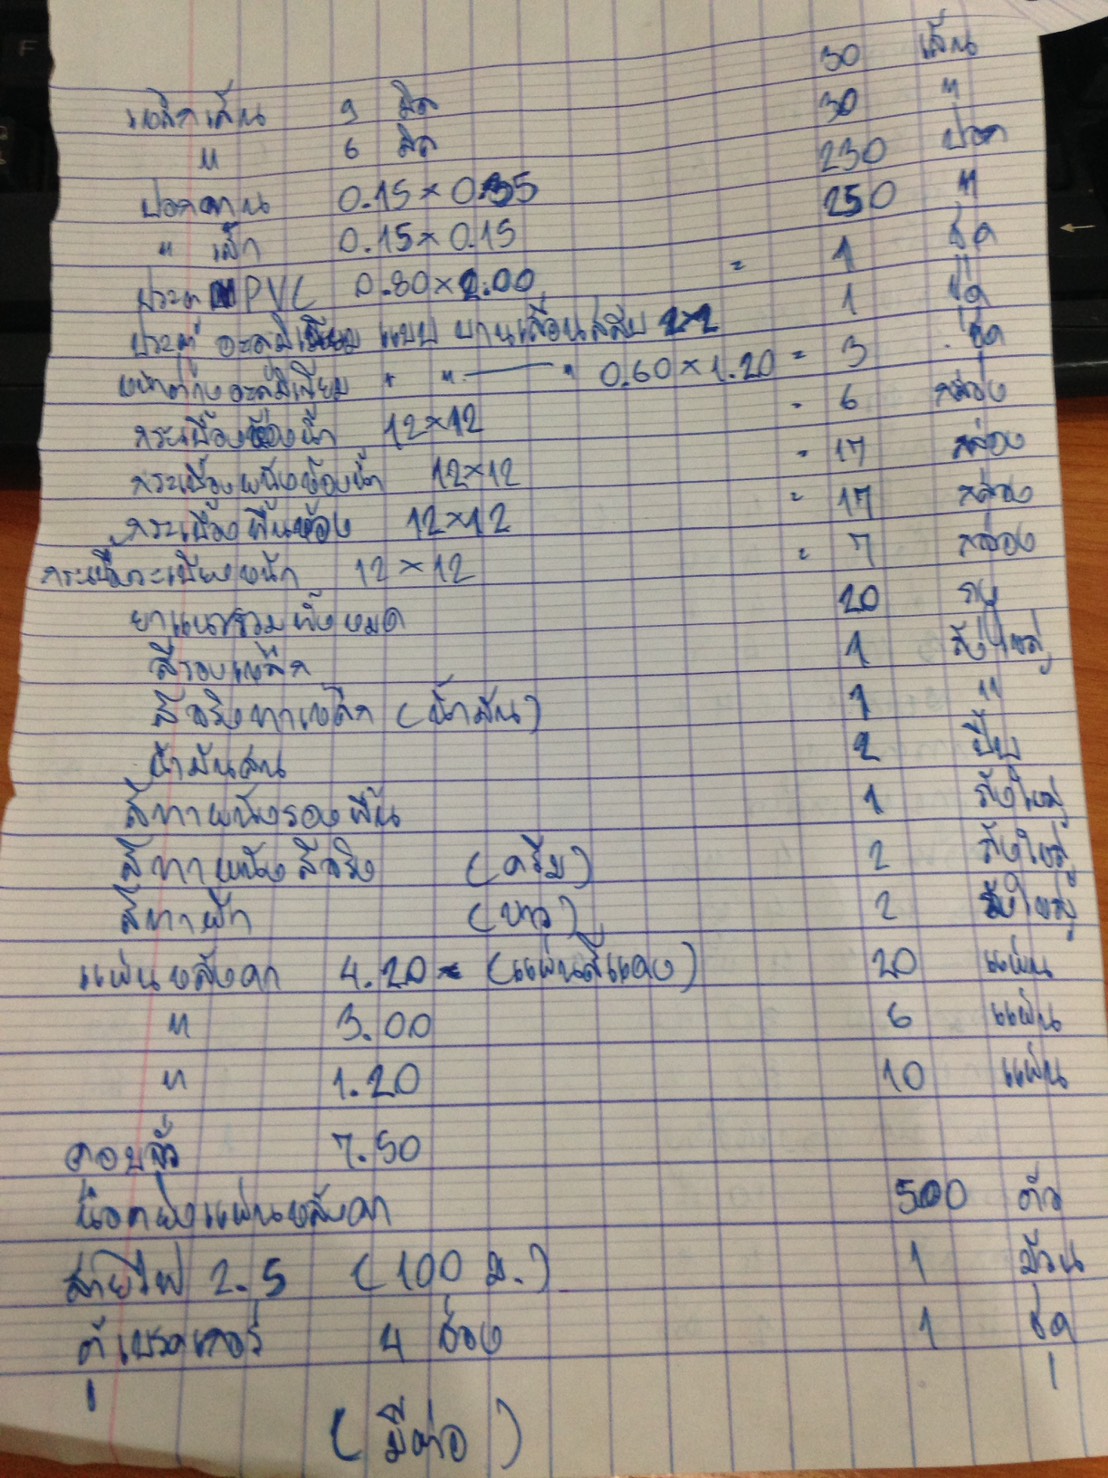 เหล็กเส้น 9 มิล 30 เส้น
" 6 มิล 30 "
ปอกคาน 0.15 × 0.35 230 ปอก
" เสา 0.15 × 0.15 250 "
ประตู PVC 0.80 × 2.00 = 1 ชุด
ประตู อะลูมิเนียม แบบ บานเลื่อนสลับ 2×2 1 ชุด
หน้าต่างอะลูมิเนียม " " — " 0.60 × 1.20 = 3 ชุด
กระเบื้องห้องน้ำ 12 × 12 = 6 กล่อง
กระเบื้องผนังห้องน้ำ 12 × 12 = 17 กล่อง
กระเบื้องพื้นห้อง 12 × 12 = 17 กล่อง
กระเบื้องระเบียงหน้า 12 × 12 = 7 กล่อง
ยาแนวรวมทั้งหมด 20 ถุง
สีรองเหล็ก 1 ถังใหญ่
สีจริงทาเหล็ก (น้ำมัน) 1 "
น้ำมันสน 2 ปี๊บ
สีทาผนังรองพื้น 1 ถังใหญ่
สีทาผนังสีจริง (ครีม) 2 ถังใหญ่
สีทาฝ้า (ขาว) 2 ถังใหญ่
แผ่นหลังคา 4.20 (แผ่นสีแดง) 20 แผ่น
" 3.00 6 แผ่น
" 1.20 10 แผ่น
ครอบจั่ว 7.50
น๊อตยิงแผ่นหลังคา 500 ตัว
สายไฟ 2.5 (100 ม.) 1 ม้วน
ตู้เบรคเกอร์ 4 ช่อง 1 ชุด
(มีต่อ)